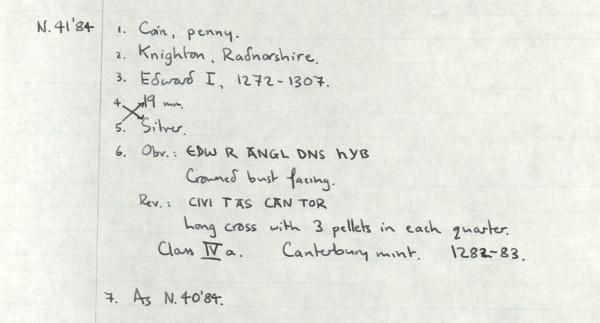 N.41'84 1. Coin, penny.
2. Knighton, Radnorshire.
3. Edward I, 1272-1307.
4. 19 mm.
5. Silver.
6. Obv.: EDW R ANGL DNS hYB
Crowned bust facing.
Rev.: CIVI TAS CAN TOR
Long cross with 3 pellets in each quarter.
Class IV a. Canterbury mint. 1282-83.
7. As N.40'84.